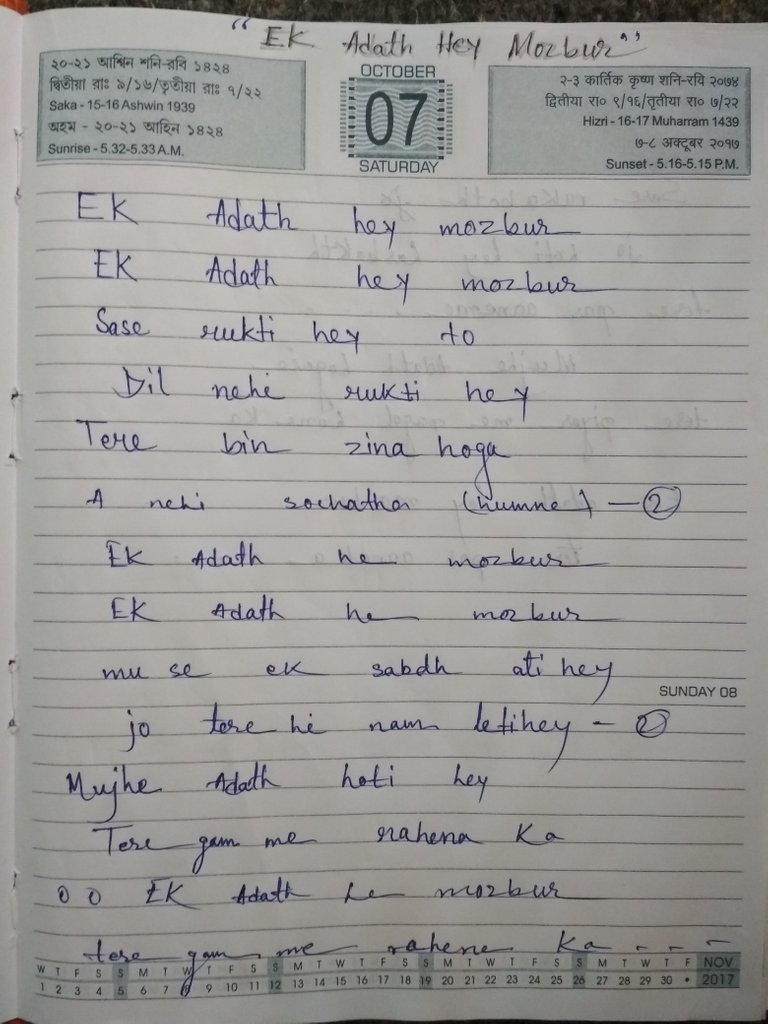 "EK Adath Hey Mozbur"
২০-২১ আশ্বিন শনি-রবি ১৪২৪
দ্বিতীয়া রাঃ ৯/১৬/তৃতীয়া রাঃ ৭/২২
Saka - 15-16 Ashwin 1939
অহম - ২০-২১ আহিন ১৪২৪
Sunrise - 5.32-5.33 A.M.
OCTOBER
07
SATURDAY
२-३ कार्तिक कृष्ण शनि-रवि २०७४
द्वितीया रा० ९/१६/तृतीया रा० ७/२२
Hizri - 16-17 Muharram 1439
७-८ अक्टूबर २०१७
Sunset - 5.16-5.15 P.M.
EK Adath hey mozbur
EK Adath hey mozbur
Sase rukti hey to
Dil nehi rukti hey
Tere bin zina hoga
A nehi sochatha (humne) - 2
EK Adath he mozbur
EK Adath he mozbur
mu se ek sabdh ati hey
SUNDAY 08
jo tere hi nam letihey - 2
Mujhe Adath hoti hey
Tere gam me rahena Ka
0 0 EK Adath he mozbur
tere gam me rahene Ka - - -
W T F S S M T W T F S S M T W T F S S M T W T F S S M T W T F NOV
1 2 3 4 5 6 7 8 9 10 11 12 13 14 15 16 17 18 19 20 21 22 23 24 25 26 27 28 29 30 • 2017